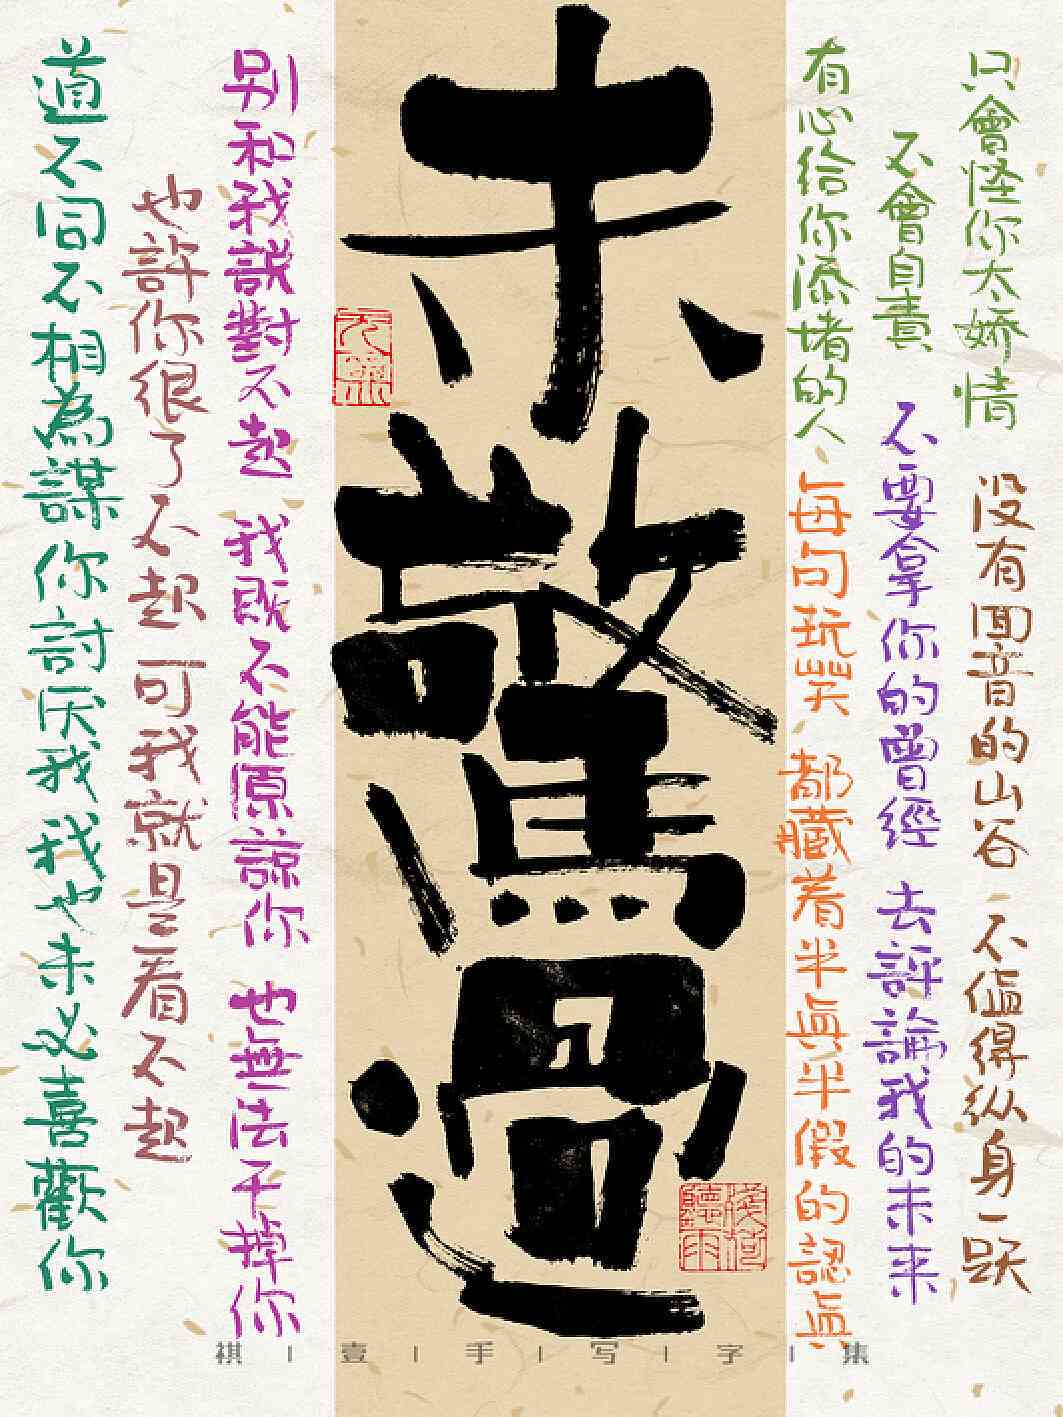 只會怪你太娇情 没有回音的山谷 不值得纵身一跃
不會自責 不要拿你的曾經 去評論我的未来
有心给你添堵的人 每句玩笑 都藏着半眞半假的認眞
未驚過
聽雨
别和我説對不起 我既不能原諒你 也無法干掉你
也許你很了不起 可我就是看不起
道不同不相為謀 你討厌我我也未必喜歡你
祺|壹|手|写|字|集